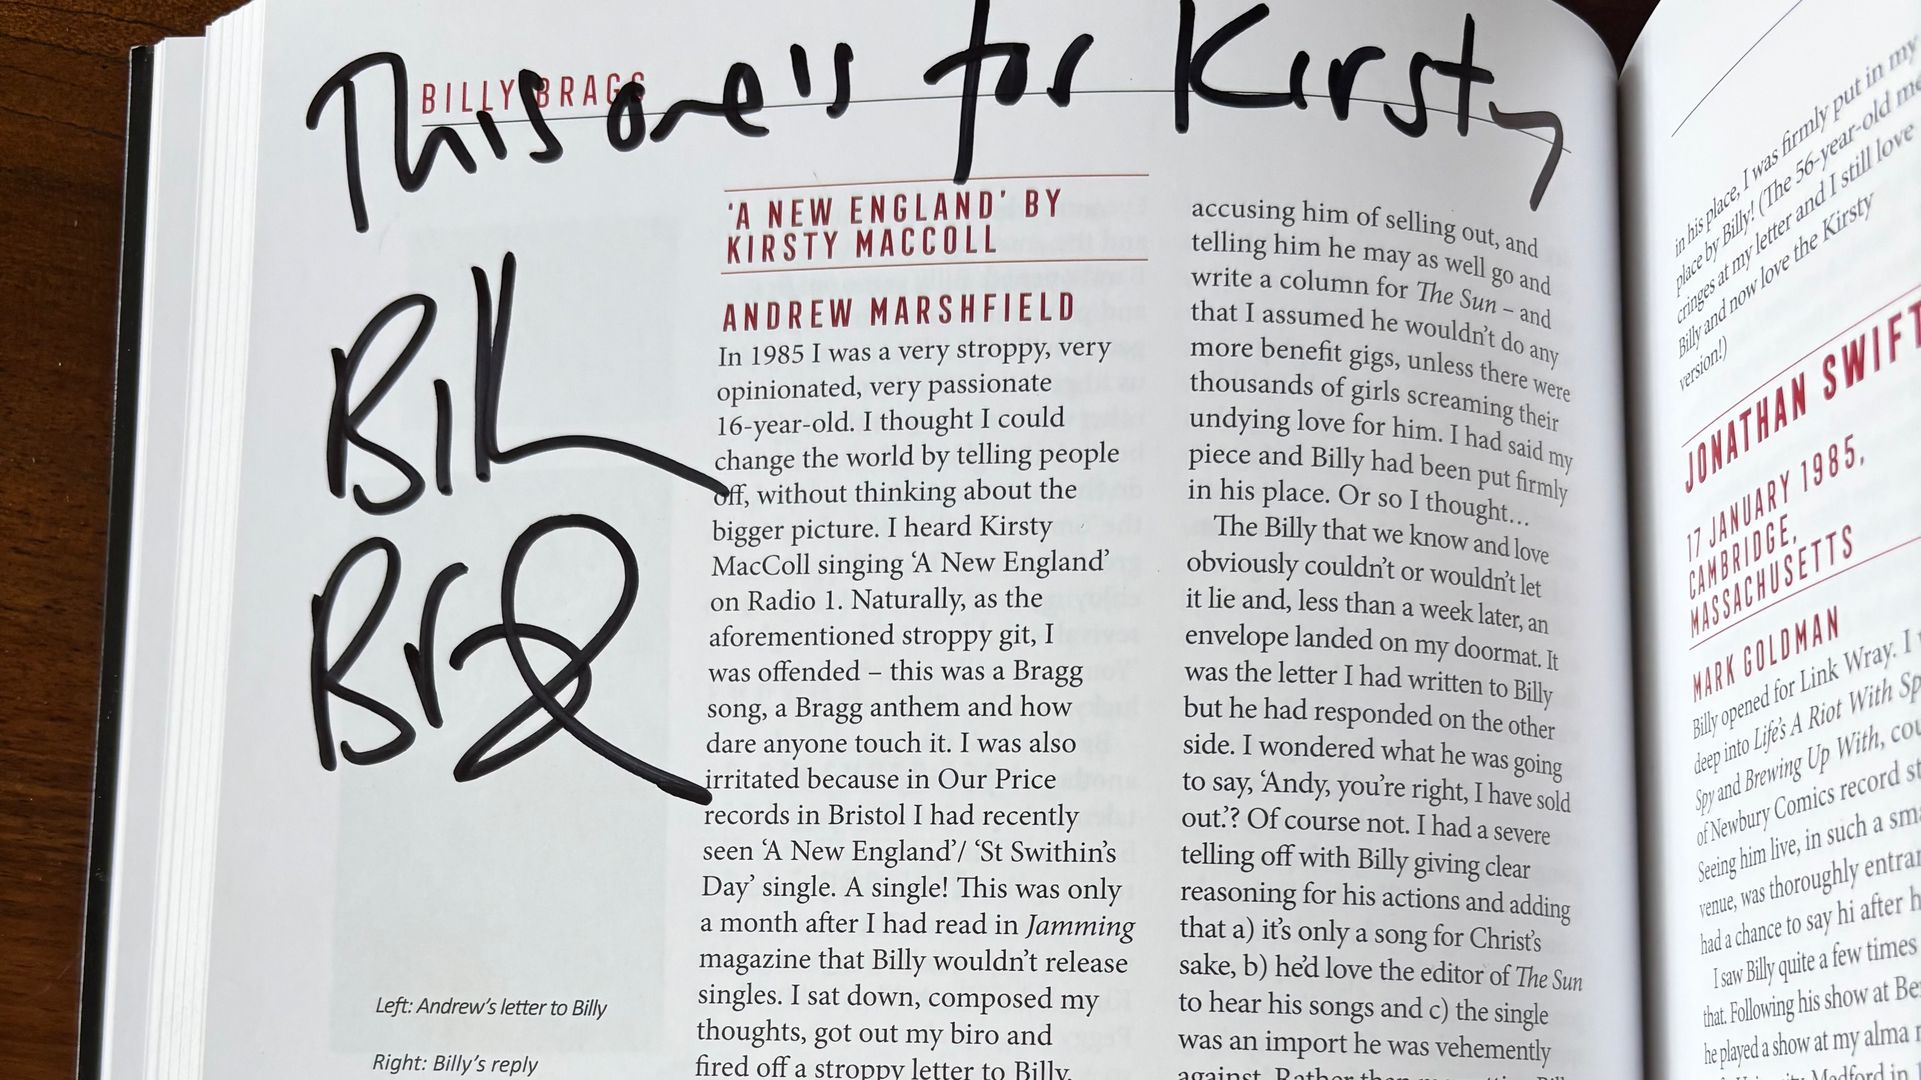 This one's for Kirsty
BILLY BRAGG
Bill
Bragg
'A NEW ENGLAND' BY
KIRSTY MACCOLL
ANDREW MARSHFIELD
In 1985 I was a very stroppy, very
opinionated, very passionate
16-year-old. I thought I could
change the world by telling people
off, without thinking about the
bigger picture. I heard Kirsty
MacColl singing 'A New England'
on Radio 1. Naturally, as the
aforementioned stroppy git, I
was offended – this was a Bragg
song, a Bragg anthem and how
dare anyone touch it. I was also
irritated because in Our Price
records in Bristol I had recently
seen 'A New England'/ 'St Swithin's
Day' single. A single! This was only
a month after I had read in Jamming
magazine that Billy wouldn't release
singles. I sat down, composed my
thoughts, got out my biro and
fired off a stroppy letter to Billy,
Left: Andrew's letter to Billy
Right: Billy's reply
accusing him of selling out, and
telling him he may as well go and
write a column for The Sun – and
that I assumed he wouldn't do any
more benefit gigs, unless there were
thousands of girls screaming their
undying love for him. I had said my
piece and Billy had been put firmly
in his place. Or so I thought…
The Billy that we know and love
obviously couldn't or wouldn't let
it lie and, less than a week later, an
envelope landed on my doormat. It
was the letter I had written to Billy
but he had responded on the other
side. I wondered what he was going
to say, 'Andy, you're right, I have sold
out.'? Of course not. I had a severe
telling off with Billy giving clear
reasoning for his actions and adding
that a) it's only a song for Christ's
sake, b) he'd love the editor of The Sun
to hear his songs and c) the single
was an import he was vehemently
against. Rather than
in his place, I was firmly put in my
place by Billy! (The 56-year-old me
cringes at my letter and I still love
Billy and now love the Kirsty
version!)
JONATHAN SWIFT
17 JANUARY 1985,
CAMBRIDGE,
MASSACHUSETTS
MARK GOLDMAN
Billy opened for Link Wray. I
deep into Life's A Riot With Spy
Spy and Brewing Up With,
of Newbury Comics record
Seeing him live, in such a
venue, was thoroughly
had a chance to say hi after
I saw Billy quite a few times
that. Following his show at
he played a show at my alma
Medford in